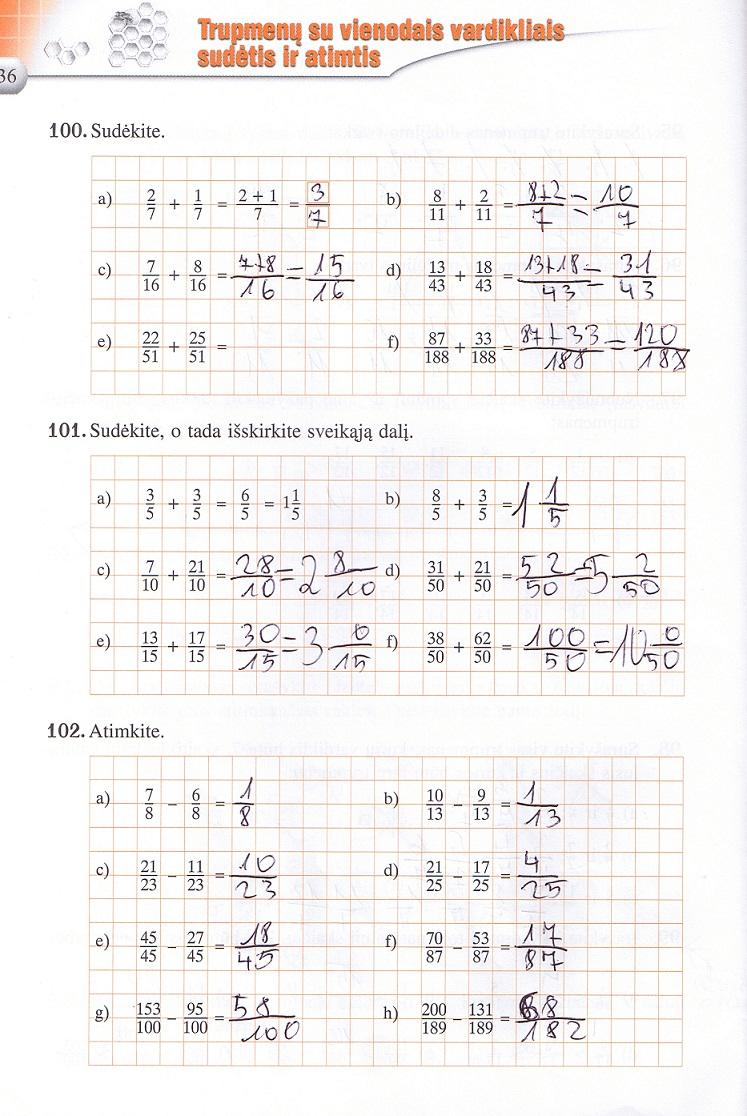 Trupmenų su vienodais vardikliais
sudėtis ir atimtis
36
100. Sudėkite.
a) 2/7 + 1/7 = (2 + 1)/7 = 3/7 b) 8/11 + 2/11 = (8+2)/7 = 10/7
c) 7/16 + 8/16 = (7+8)/16 = 15/16 d) 13/43 + 18/43 = (13+18)/43 = 31/43
e) 22/51 + 25/51 = f) 87/188 + 33/188 = (87+33)/188 = 120/188
101. Sudėkite, o tada išskirkite sveikąją dalį.
a) 3/5 + 3/5 = 6/5 = 1 1/5 b) 8/5 + 3/5 = 1 1/5
c) 7/10 + 21/10 = 28/10 = 2 8/10 d) 31/50 + 21/50 = 52/50 = 5 2/50
e) 13/15 + 17/15 = 30/15 = 3 0/15 f) 38/50 + 62/50 = 100/50 = 10 0/50
102. Atimkite.
a) 7/8 – 6/8 = 1/8 b) 10/13 – 9/13 = 1/13
c) 21/23 – 11/23 = 10/23 d) 21/25 – 17/25 = 4/25
e) 45/45 – 27/45 = 18/45 f) 70/87 – 53/87 = 17/87
g) 153/100 – 95/100 = 58/100 h) 200/189 – 131/189 = 68/182